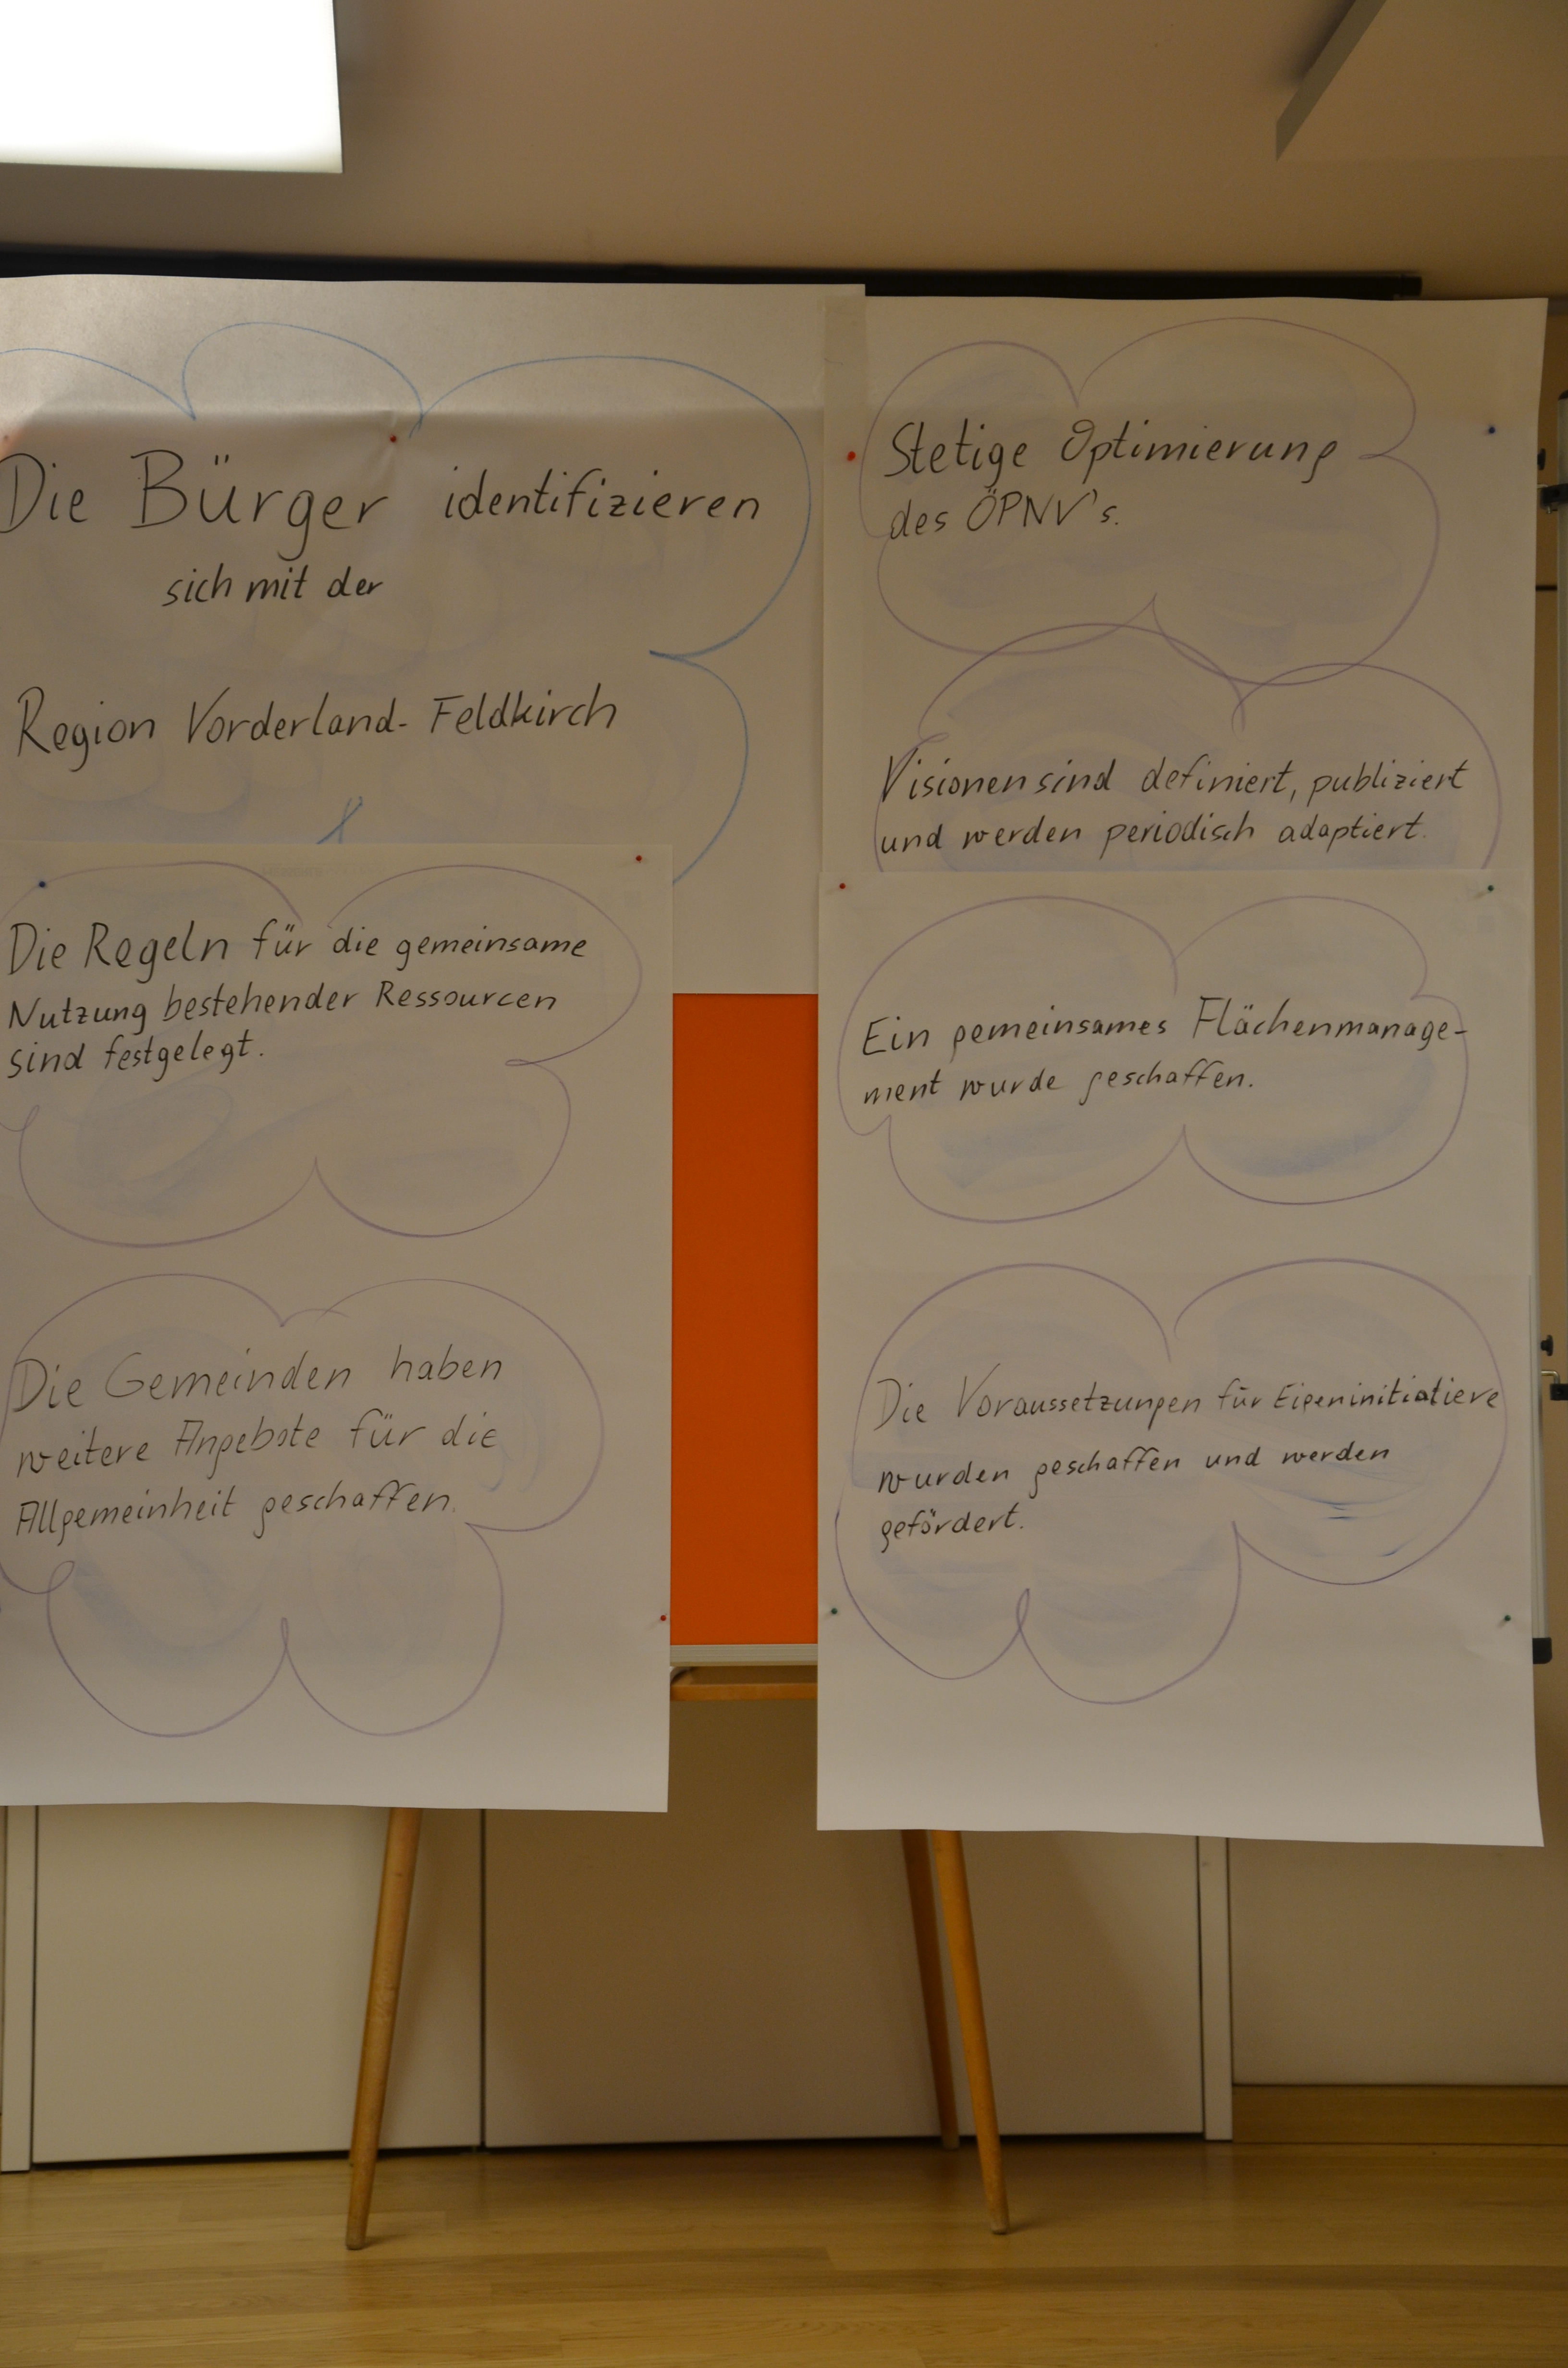 Die Bürger identifizieren
sich mit der
Region Vorderland-Feldkirch
Die Regeln für die gemeinsame
Nutzung bestehender Ressourcen
sind festgelegt.
Die Gemeinden haben
weitere Angebote für die
Allgemeinheit geschaffen.
Stetige Optimierung
des ÖPNV's.
Visionen sind definiert, publiziert
und werden periodisch adaptiert.
Ein gemeinsames Flächenmanage-
ment wurde geschaffen.
Die Voraussetzungen für Eigeninitiative
wurden geschaffen und werden
gefördert.